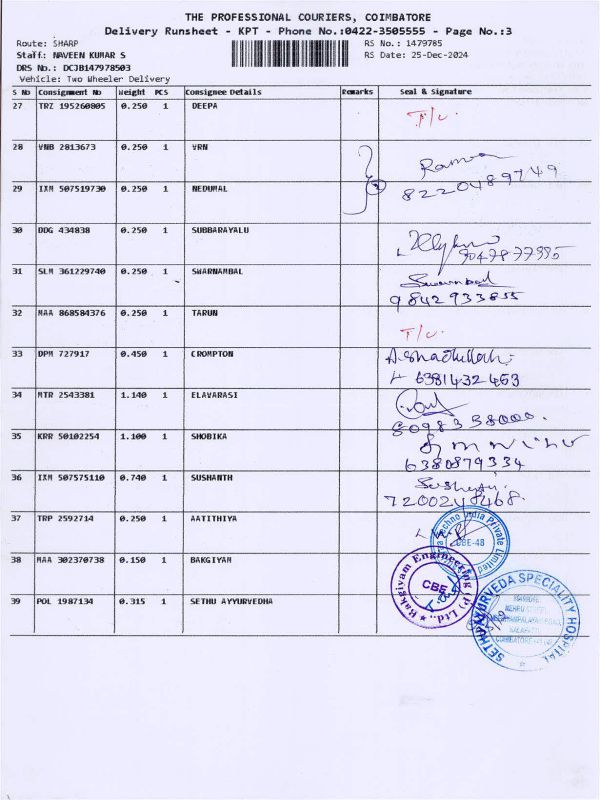 THE PROFESSIONAL COURIERS, COIMBATORE
Delivery Runsheet - KPT - Phone No.:0422-3505555 - Page No.:3
Route: SHARP RS No.: 1479785
Staff: NAVEEN KUMAR S RS Date: 25-Dec-2024
DRS No.: DCJB147978503
Vehicle: Two Wheeler Delivery
S No Consignment No Weight PCS Consignee Details Remarks Seal & Signature
27 TRZ 195260805 0.250 1 DEEPA T/C.
28 VNB 2813673 0.250 1 VRN
29 IXM 507519730 0.250 1 NEDUMAL 8220489749
30 DDG 434838 0.250 1 SUBBARAYALU 9047877995
31 SLM 361229740 0.250 1 SWARNAMBAL Swarnambal
9842933855
32 MAA 868584376 0.250 1 TARUN T/C.
33 DPM 727917 0.450 1 CROMPTON
6381432453
34 MTR 2543381 1.140 1 ELAVARASI
8098338000.
35 KRR 50102254 1.100 1 SHOBIKA
6380879334
36 IXM 507575110 0.740 1 SUSHANTH
7200248468
37 TRP 2592714 0.250 1 AATITHIYA
Techno India Private Limited
CBE-48
38 MAA 302370738 0.150 1 BAKGIYAM
Bakgiyam Engineering (P) Ltd.,
CBE
39 POL 1987134 0.315 1 SETHU AYYURVEDHA
SETHU AYURVEDA SPECIALITY HOSPITAL